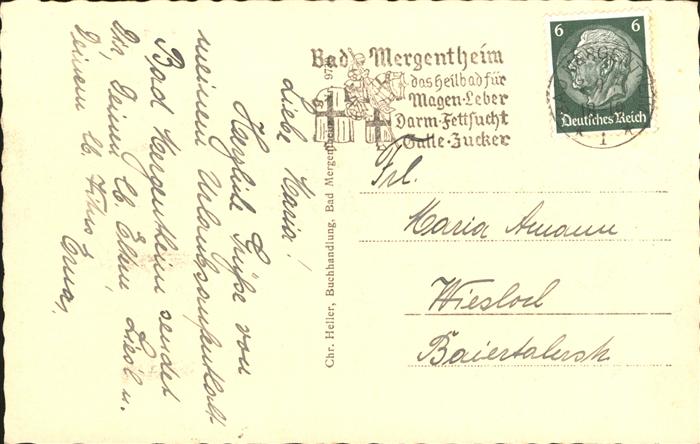 Liebe Maria!
Herzliche Grüße von
meinem Urlaubsaufenthalt
Bad Mergentheim sendet
Dir, Deinen lb. Eltern, Liesl u.
Deinem lb.
Erna,
Chr. Heller, Buchhandlung, Bad Mergentheim
Bad Mergentheim
das Heilbad für
Magen-Leber
Darm-Fettsucht
Galle-Zucker
6 6
Deutsches Reich
1
Frl.
Maria Amann
Wiesloch
Baiertalerstr.